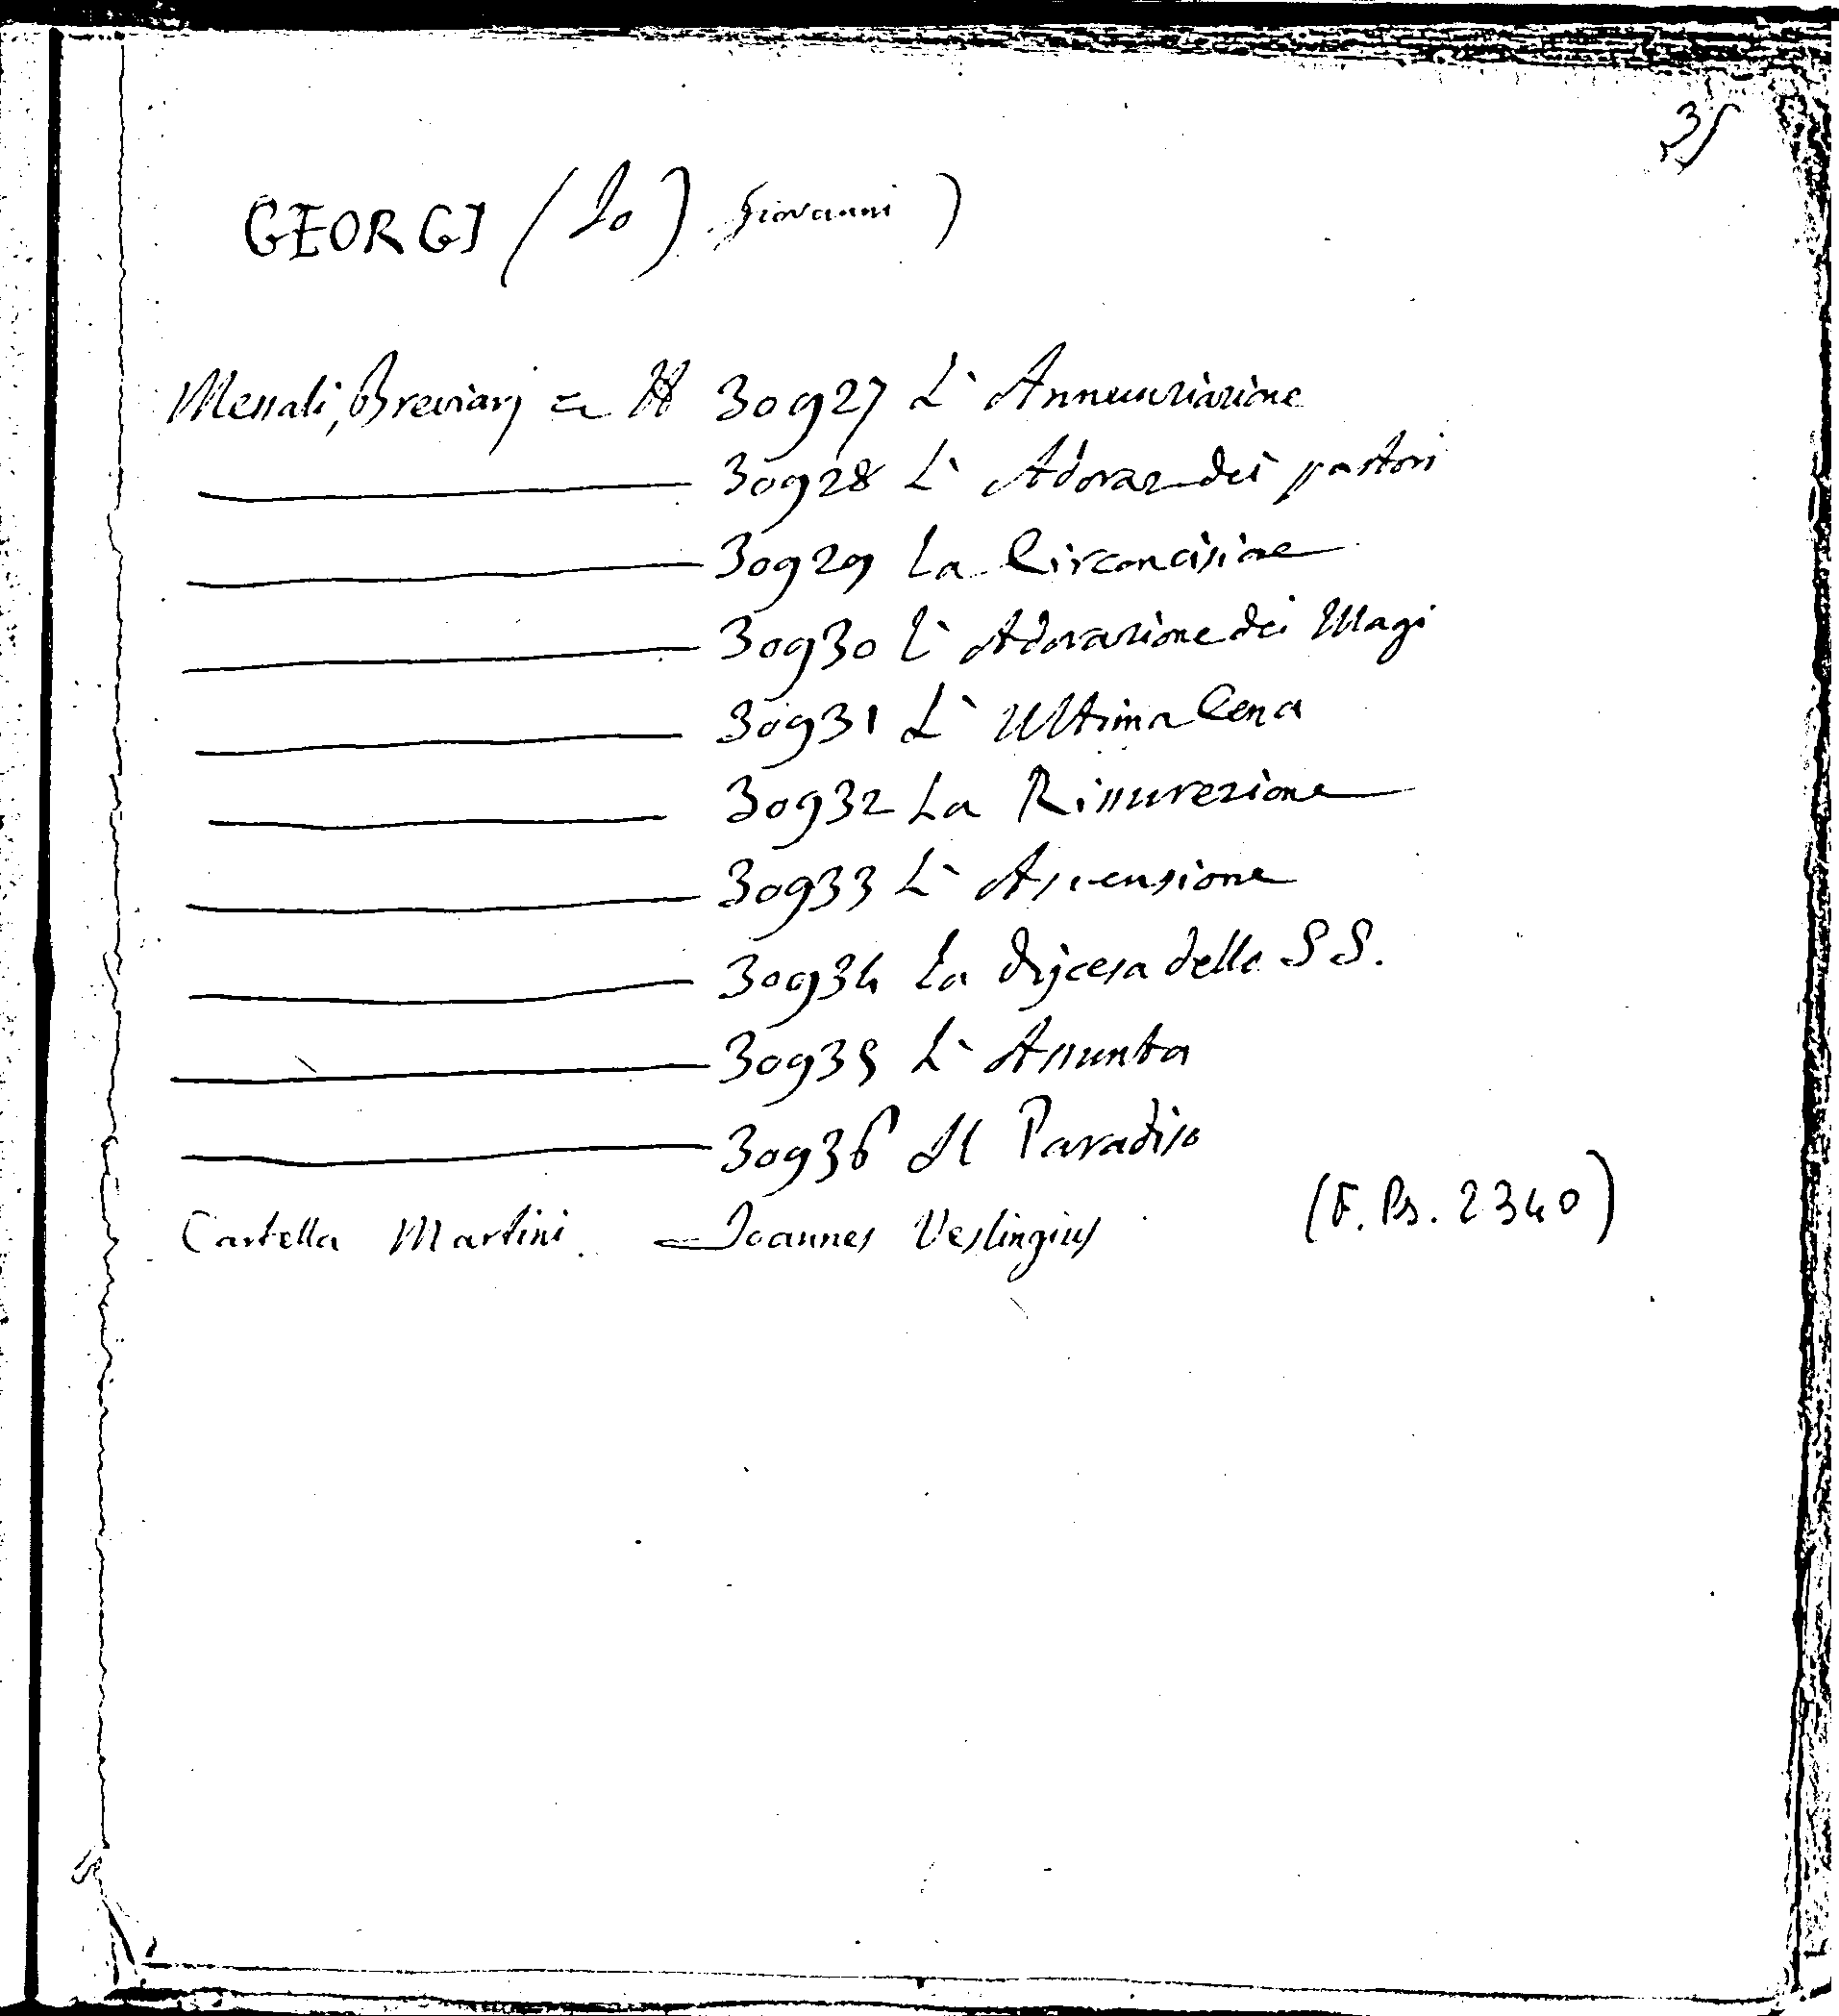 35
GEORGI (Io) Giovanni)
Messali, Breviarj 30927 L' Annunziazione
30928 L' Adoraz dei pastori
30929 La Circoncisione
30930 L' Adorazione dei Magi
30931 L' Ultima Cena
30932 La Rissurezione
30933 L' Ascensione
30934 La discesa dello S S.
30935 L' Assunta
30936 Il Paradiso
Cartella Martini Joannes Veslingius (F. Ps. 2340)